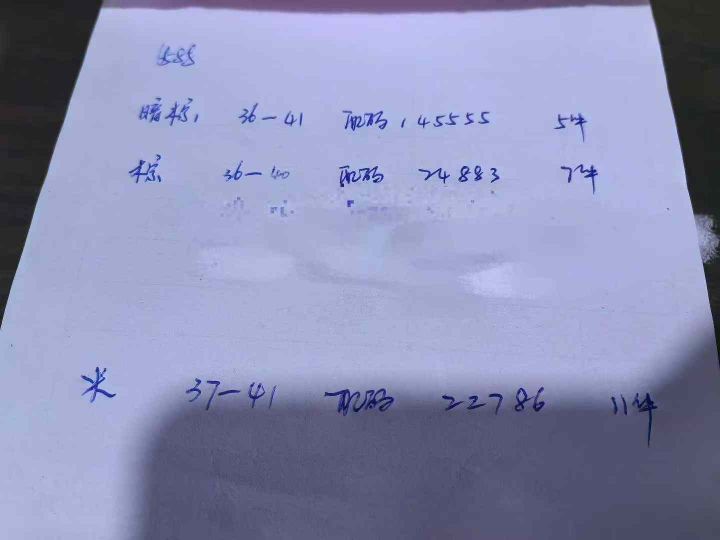 585
暗棕, 36-41 配码, 45555 5件
棕 36-40 配码 24883 7件
米 37-41 配码 22786 11件